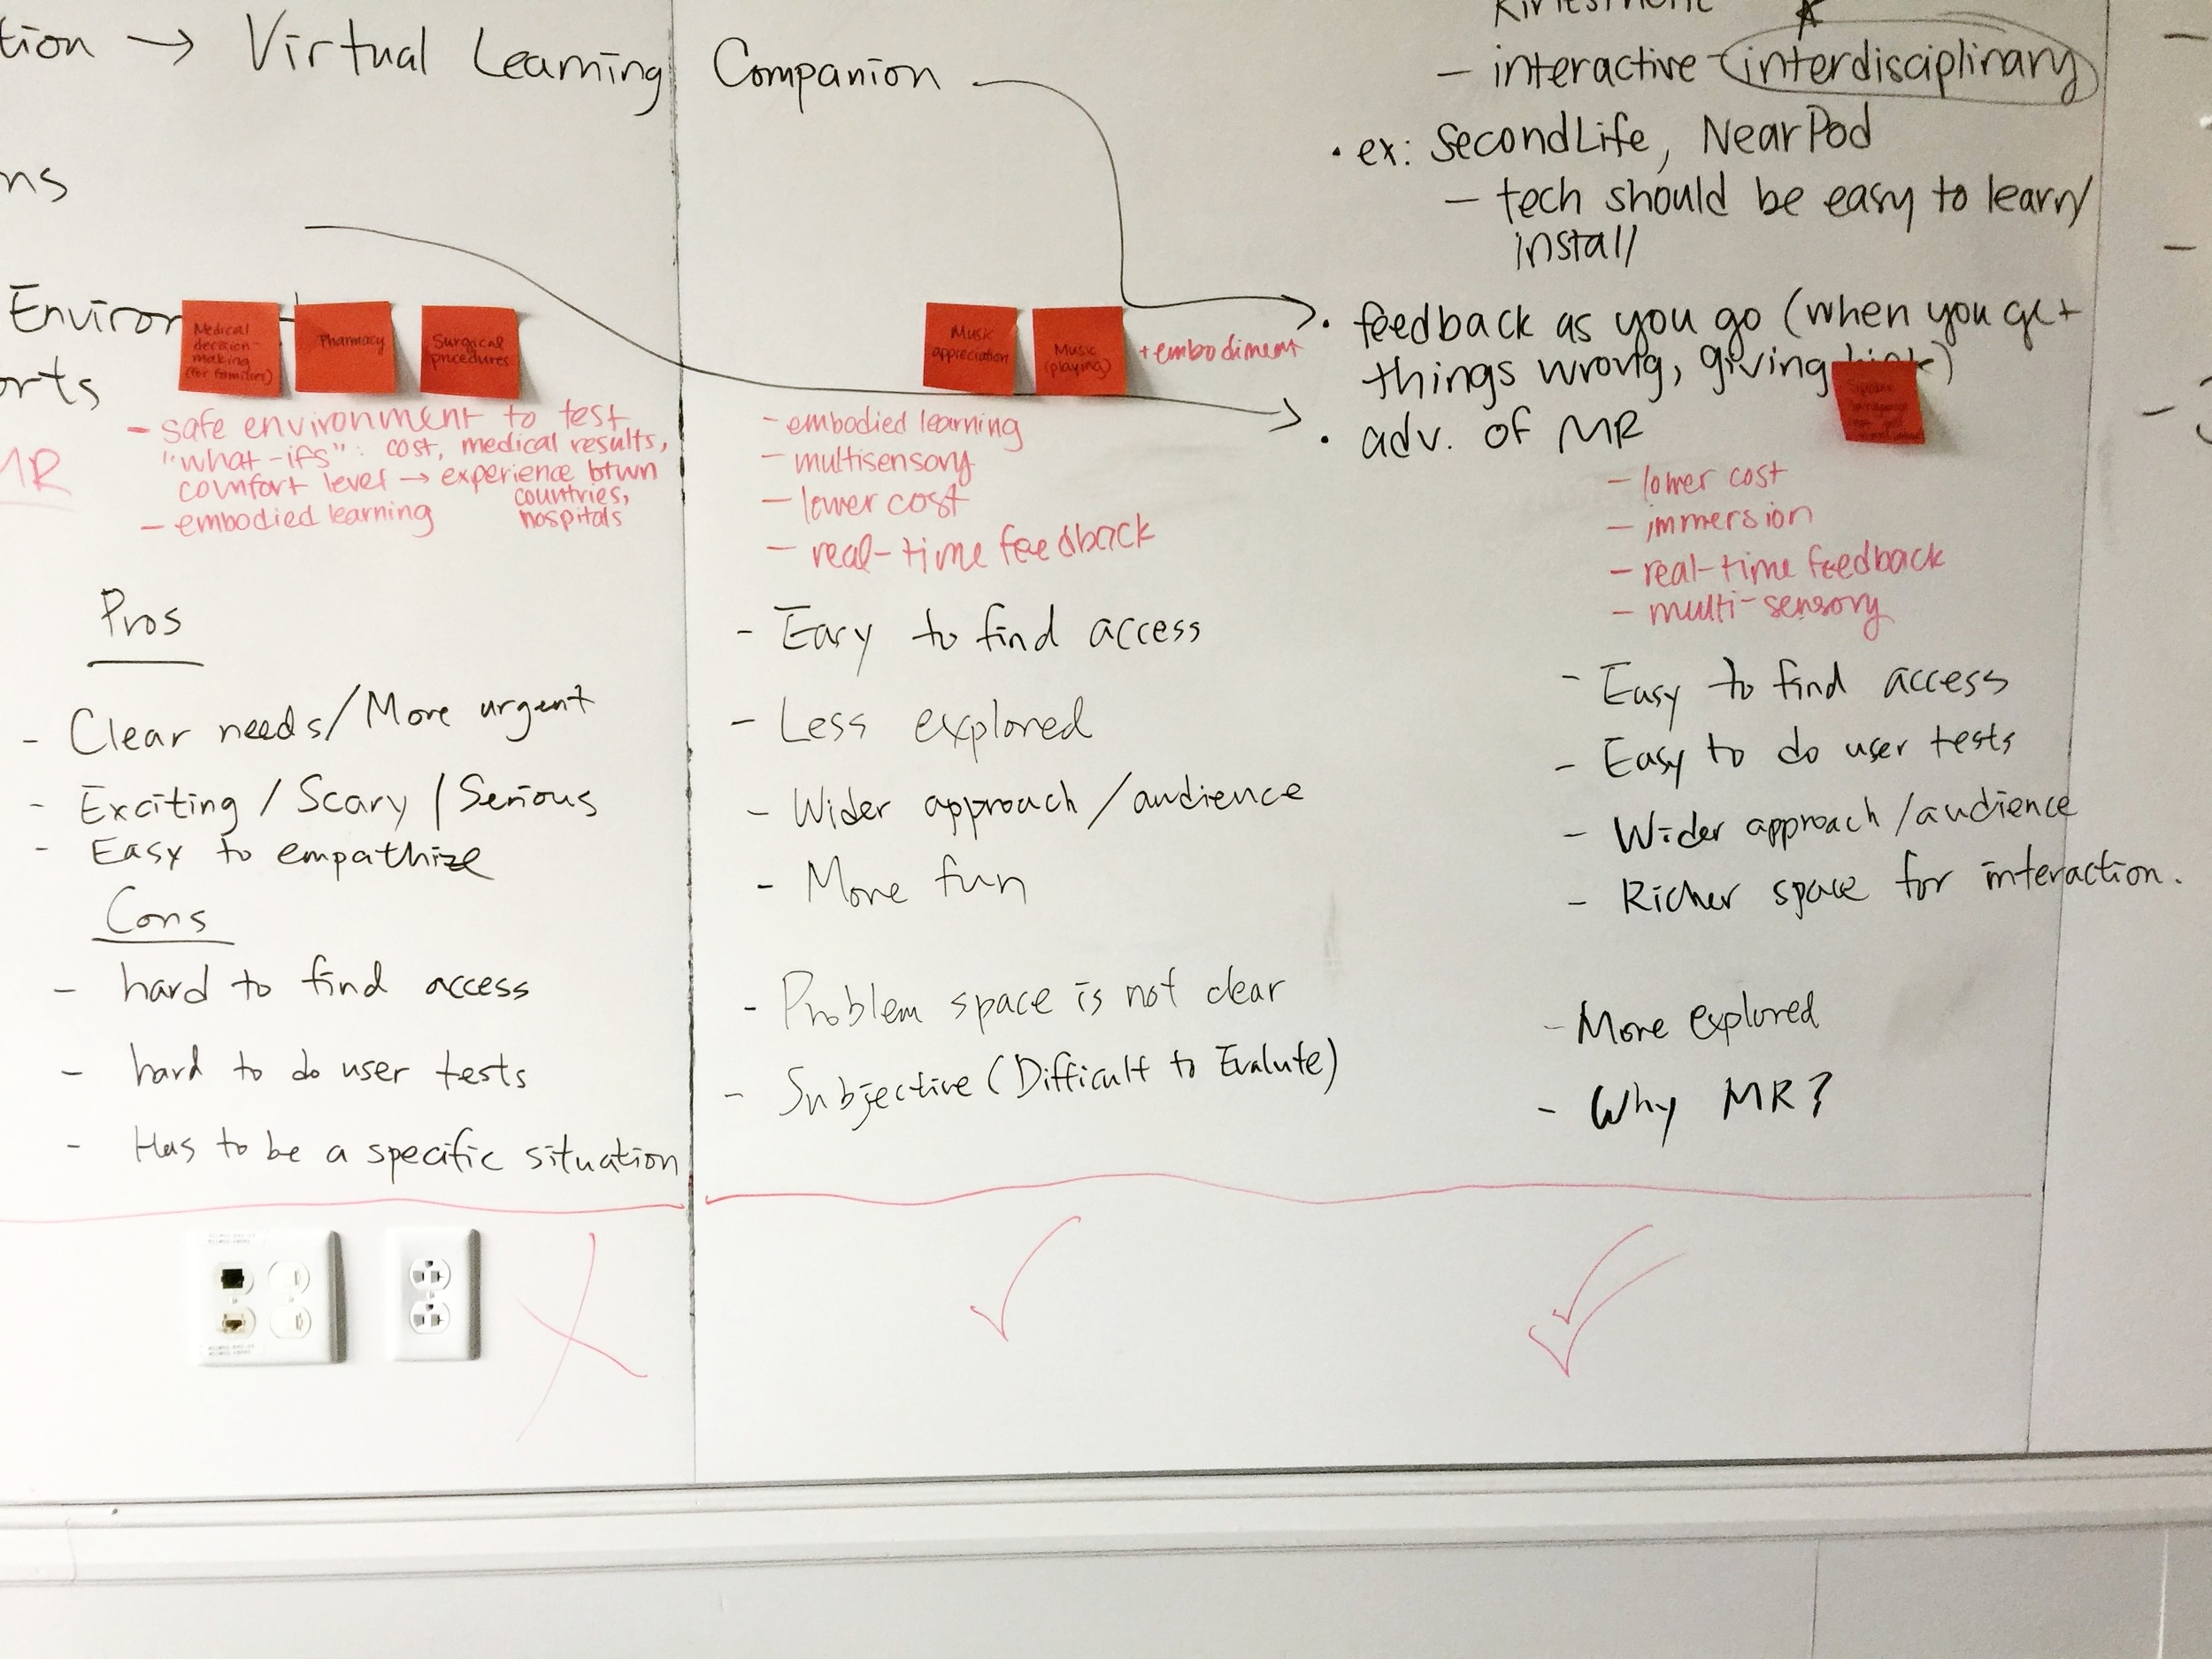 tion → Virtual Learning Companion
ns
Environ
orts
MR
Medical
decision-
making
(for families)
Pharmacy
Surgical
procedures
- safe environment to test
"what-ifs": cost, medical results,
comfort level → experience btwn
countries,
hospitals
- embodied learning
Pros
- Clear needs/More urgent
- Exciting / Scary / Serious
- Easy to empathize
Cons
- hard to find access
- hard to do user tests
- Has to be a specific situation
Music
appreciation
Music
(playing)
+ embodiment
- embodied learning
- multisensory
- lower cost
- real-time feedback
- Easy to find access
- Less explored
- Wider approach/audience
- More fun
- Problem space is not clear
- Subjective (Difficult to Evalute)
- interactive - interdisciplinary
• ex: SecondLife, NearPod
- tech should be easy to learn/
install
• feedback as you go (when you get
things wrong, giving
• adv. of MR
- lower cost
- immersion
- real-time feedback
- multi-sensory
- Easy to find access
- Easy to do user tests
- Wider approach/audience
- Richer space for interaction.
- More explored
- Why MR?